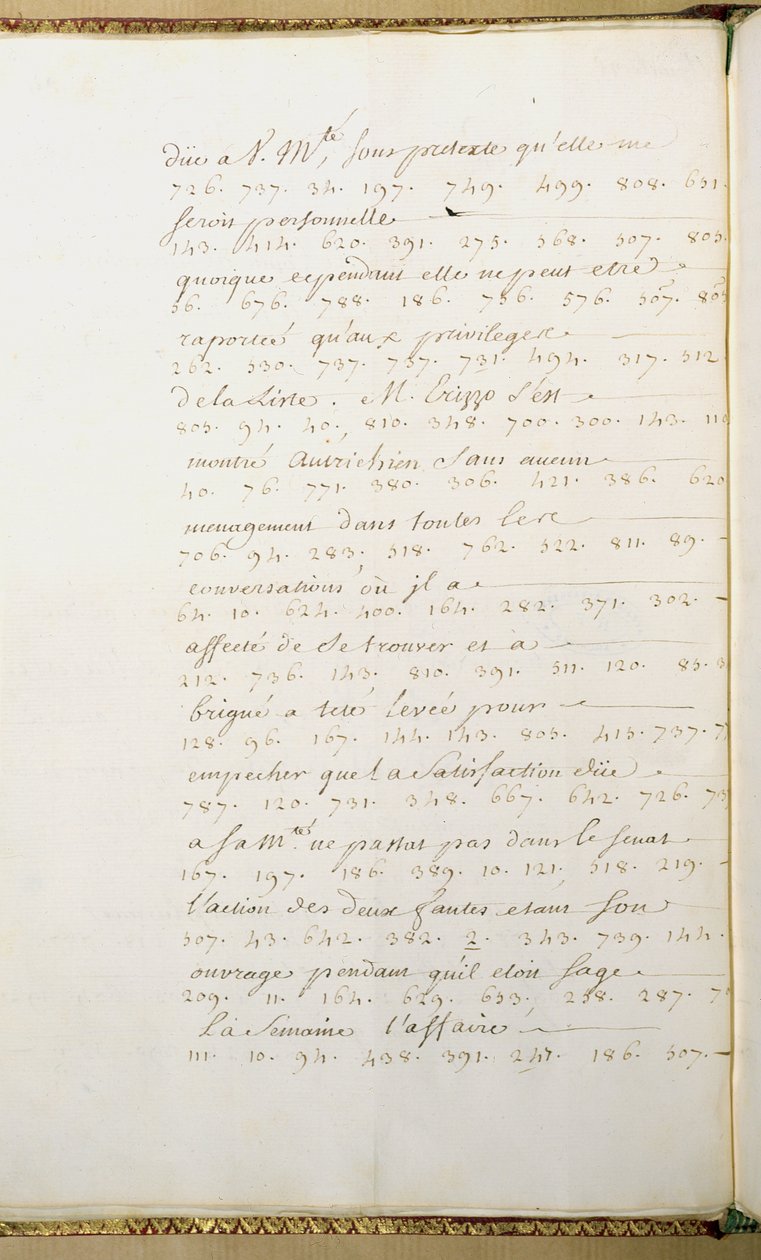 düe a V. Mté, sous pretexte qu'elle me
726. 737. 34. 197. 749. 499. 808. 651.
seroit personnelle
143. 414. 620. 391. 275. 568. 507. 805.
quoique cependant elle ne peut etre
56. 676. 788. 186. 756. 576. 507. 805
raportée qu'aux privileges
262. 530. 737. 757. 731. 494. 317. 512
de la Liste. M. Erizzo s'est
805. 94. 40. 810. 348. 700. 300. 143. 110
montré Autrichien sans aucun
40. 76. 771. 380. 306. 421. 386. 620
menagement dans toutes les
706. 94. 283. 518. 762. 522. 811. 89.
conversations où il a
64. 10. 624. 400. 164. 282. 371. 302.
affecté de se trouver et a
212. 736. 143. 810. 391. 511. 120. 85. 3
brigué a tete levée pour
128. 96. 167. 144. 143. 805. 415. 737. 7
empecher que la Satisfaction düe
787. 120. 731. 348. 667. 642. 726. 73
a sa Mté. ne passat pas dans le senat
167. 197. 186. 389. 10. 121. 518. 219.
l'action des deux fautes etant son
507. 43. 642. 382. 2. 343. 739. 144.
ouvrage pendant qu'il etoit sage
209. 11. 164. 629. 653. 258. 287. 7
la Semaine l'affaire
111. 10. 94. 438. 391. 247. 186. 507.